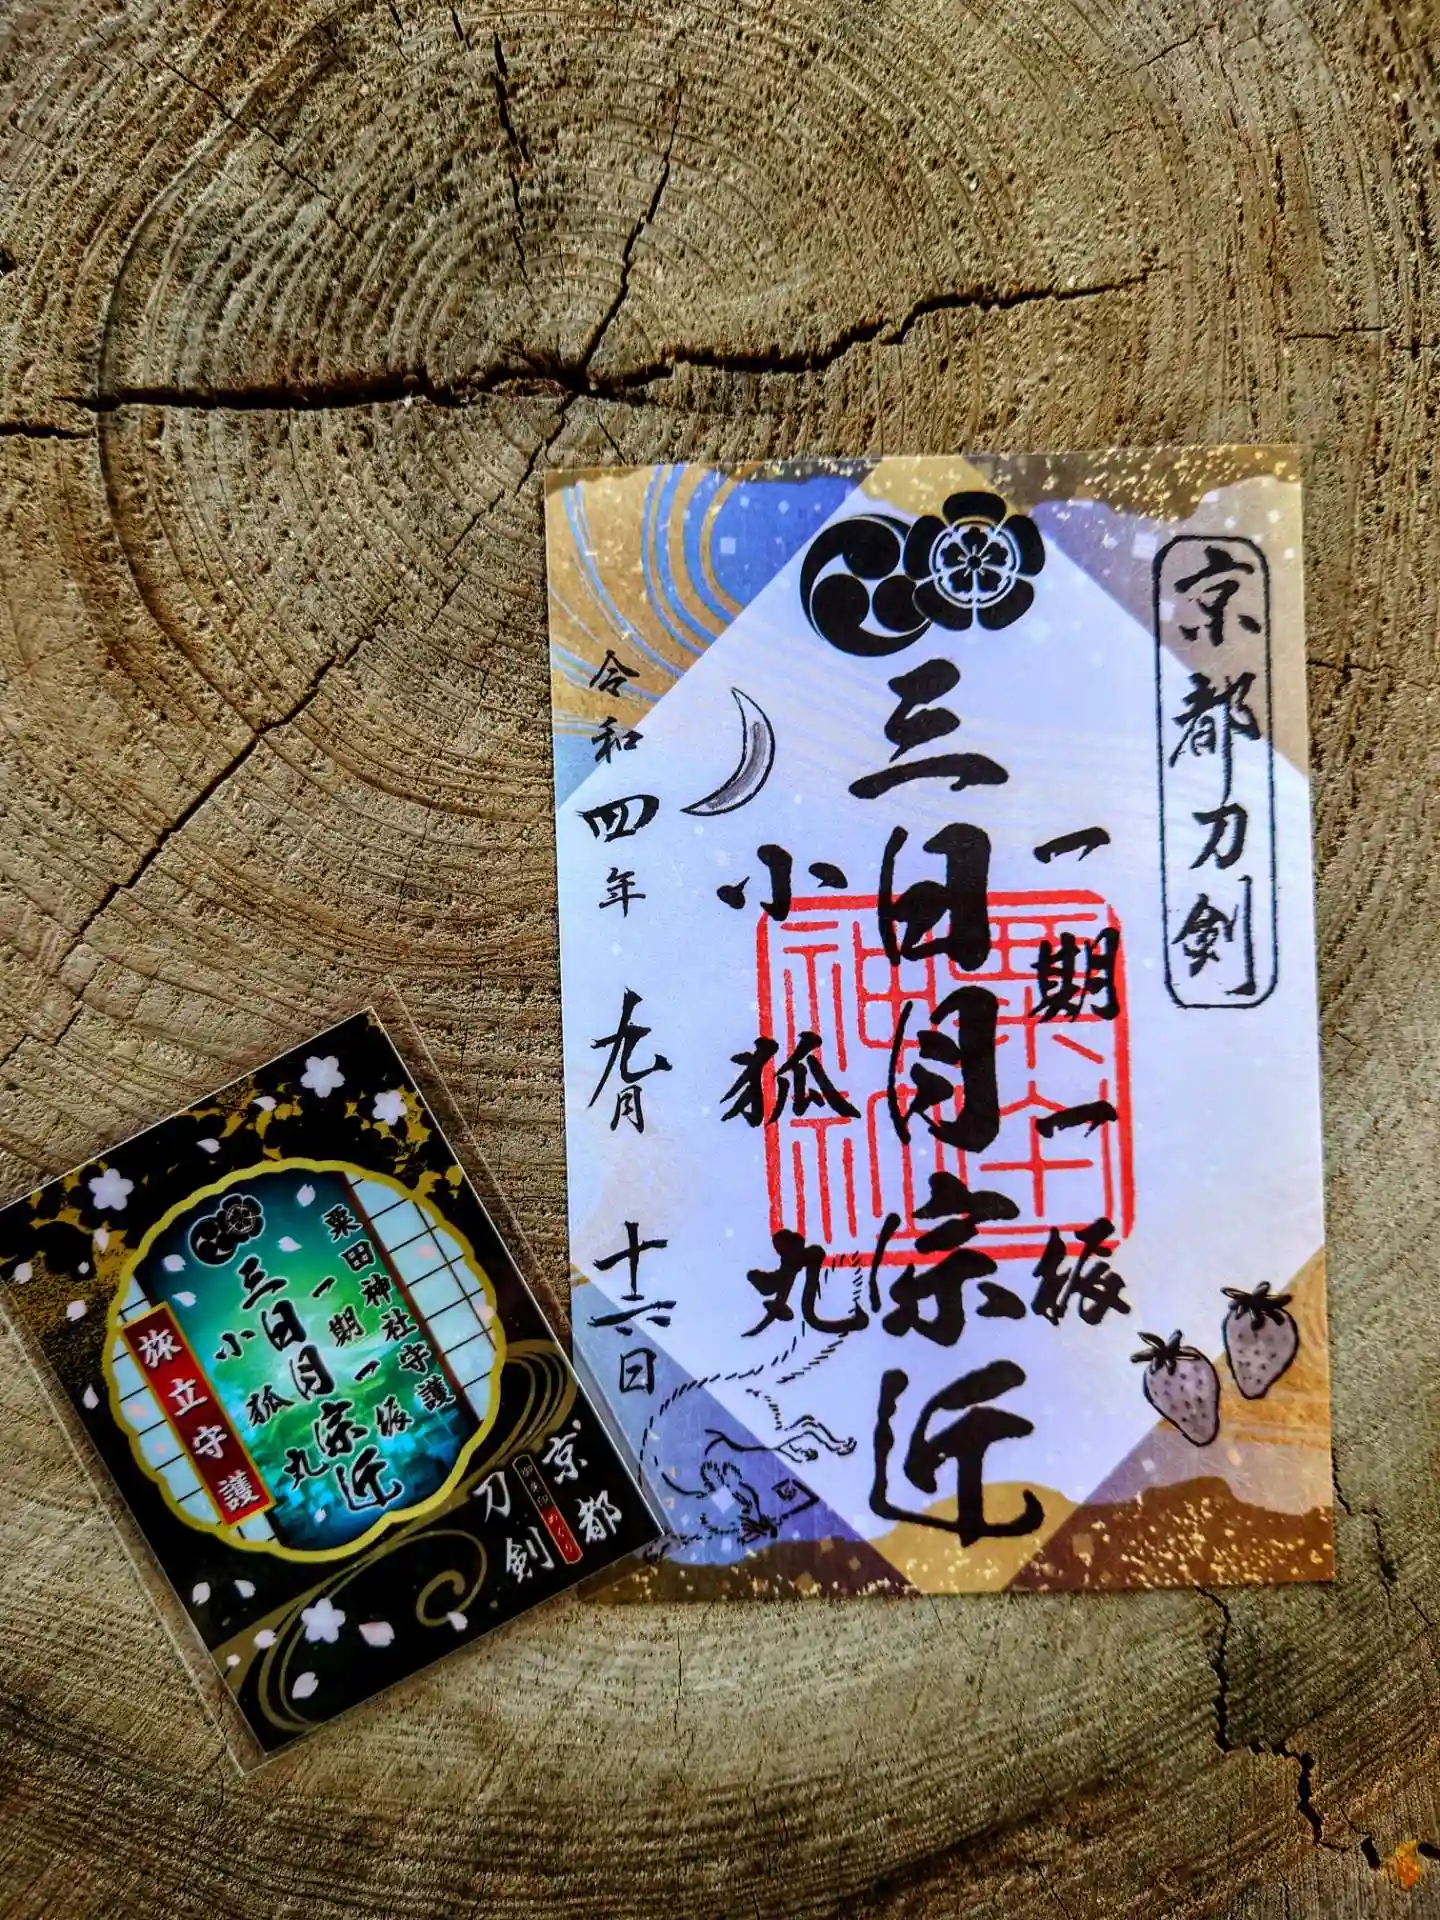 京都刀剣
一期一振
三日月宗近
小狐丸
令和四年九月十六日
粟田神社
粟田神社守護
一期一振
三日月宗近
小狐丸
旅立守護
京都
刀剣
御朱印めぐり